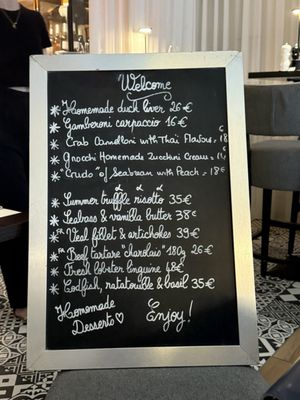 Welcome
* Homemade duck liver 26€
* Gamberoni carpaccio 16€
* Crab Cannelloni with Thaï Flavors. 18
* Gnocchi Homemade Zucchini Cream
* "Crudo" of Seabream with Peach - 18€
* Summer truffle risotto 35€
* Seabass & vanilla butter 38€
* FR Veal fillet & artichokes 39€
* FR Beef tartare "charolais" 180g 26€
* Fresh lobster linguine 48€
* Codfish, ratatouille & basil 35€
Homemade
Desserts ♡
Enjoy!